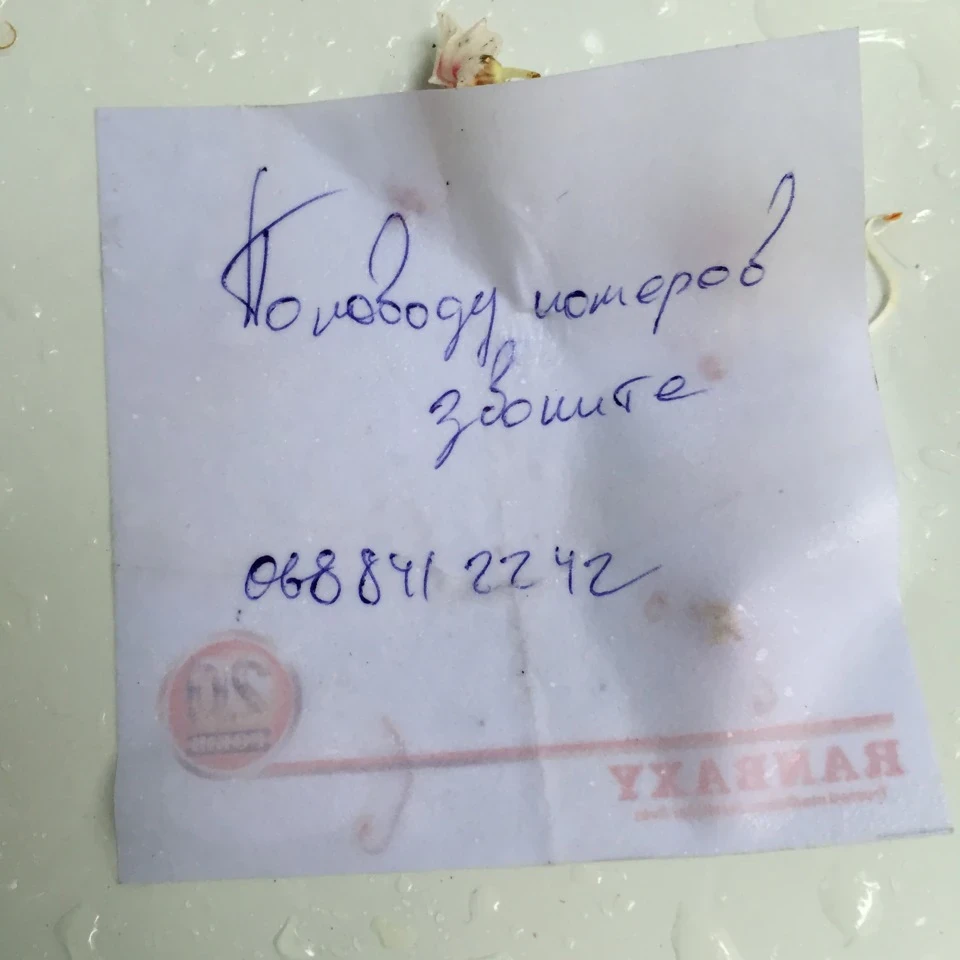 По поводу номеров
звоните
068 841 22 42
20
RANBAXY